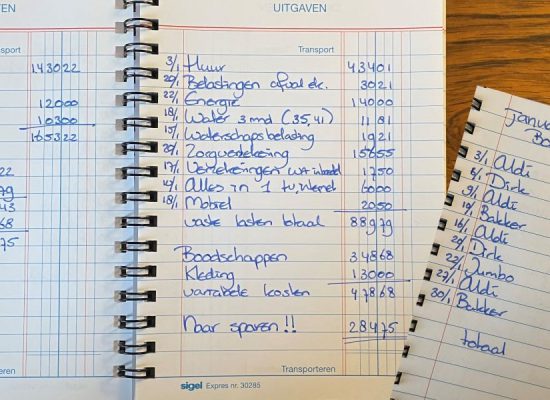 TEN
sport
143022
12000
10300
165322
UITGAVEN
Transport
3/1 Huur 43401
20/1 Belastingen afval etc. 3021
22/1 Energie 14000
18/1 Water 3 mnd (35,41) 1181
15/1 Waterschapsbelasting 1921
26/1 Zorgverzekering 15655
17/1 Verzekeringen WA inboedel 1750
14/1 Alles in 1 tv, internet 6000
18/1 Mobiel 2050
vaste lasten totaal 88979
Boodschappen 34868
Kleding 13000
variabele kosten 47868
Naar sparen!! 28475
Transporteren
sigel Expres nr. 30285
janua
Bo
3/1 Aldi
Dirk
9/1 Aldi
Bakker
16/1 Aldi
Dirk
22/1 Jumbo
27/1 Aldi
30/1 Bakker
totaal